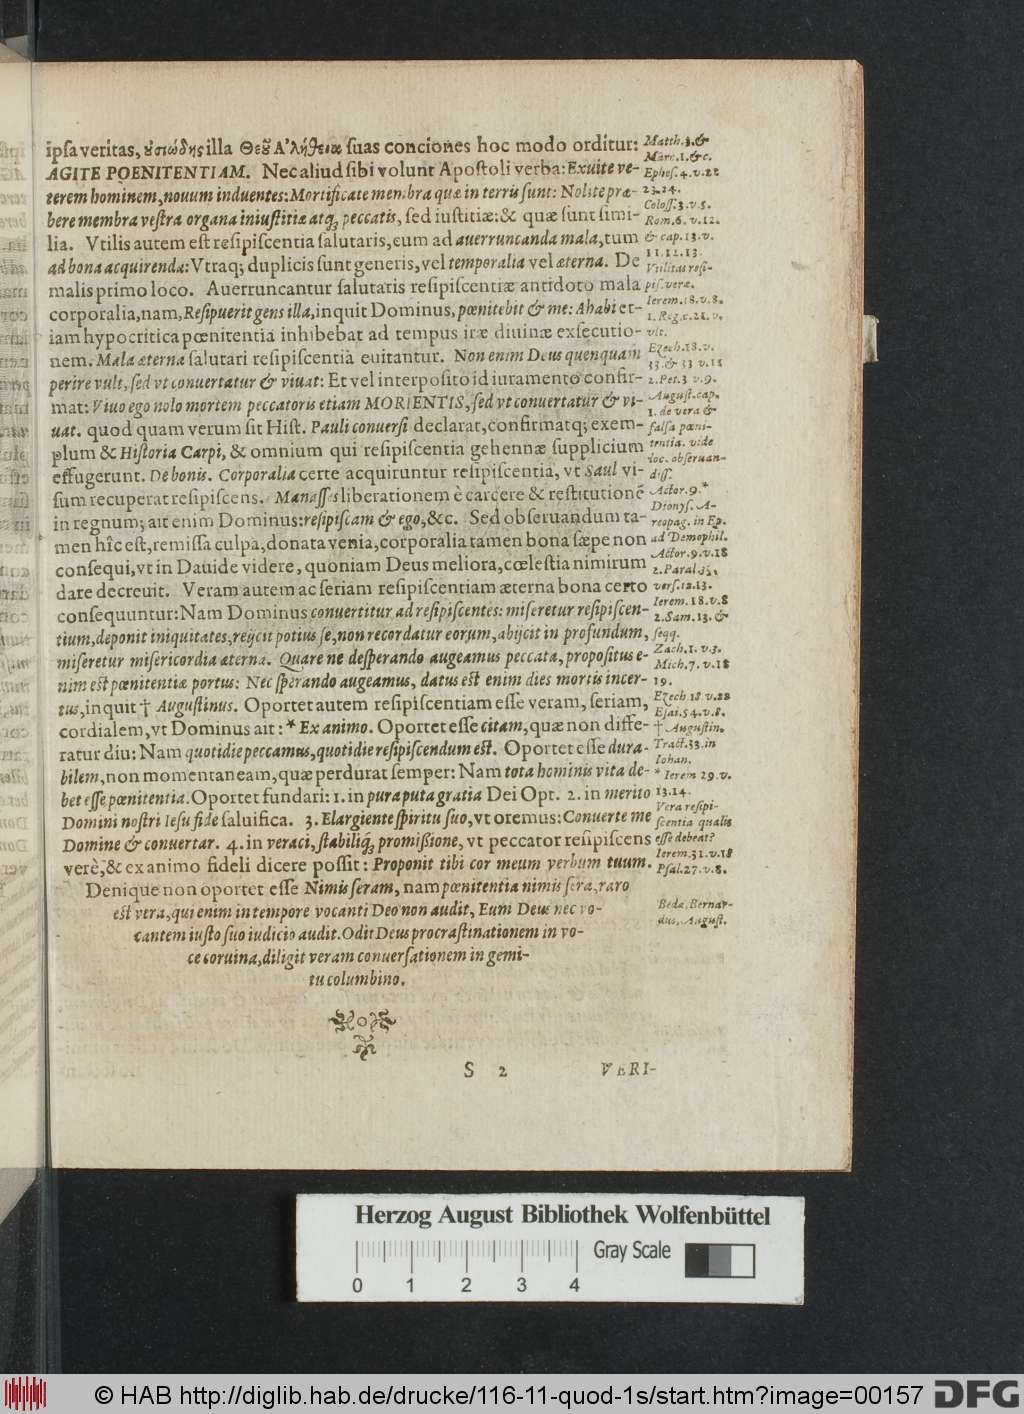 ipſa veritas, ȣ̓σιώδης illa Θεȣ͂ Α᾽λήθεια ſuas conciones hoc modo orditur:
AGITE POENITENTIAM. Nec aliud ſibi volunt Apoſtoli verba: Exuite ve-
terem hominem, nouum induentes: Mortificate membra quæ in terris ſunt: Nolite præ-
bere membra veſtra organa iniuſtitiæ atq; peccatis, ſed iuſtitiæ: & quæ ſunt ſimi-
lia. Vtilis autem eſt reſipiſcentia ſalutaris, cum ad auerruncanda mala, tum
ad bona acquirenda: Vtraq; duplicis ſunt generis, vel temporalia vel æterna. De
malis primo loco. Auerruncantur ſalutaris reſipiſcentiæ antidoto mala
corporalia, nam, Reſipuerit gens illa, inquit Dominus, pœnitebit & me: Ahabi et-
iam hypocritica pœnitentia inhibebat ad tempus iræ diuinæ exſecutio-
nem. Mala æterna ſalutari reſipiſcentiâ euitantur. Non enim Deus quenquam
perire vult, ſed vt conuertatur & viuat: Et vel interpoſito id iuramento confir-
mat: Viuo ego nolo mortem peccatoris etiam MORIENTIS, ſed vt conuertatur & vi-
uat. quod quam verum ſit Hiſt. Pauli conuerſi declarat, confirmatq; exem-
plum & Hiſtoria Carpi, & omnium qui reſipiſcentia gehennæ ſupplicium
effugerunt. De bonis. Corporalia certe acquiruntur reſipiſcentiâ, vt Saul vi-
ſum recuperat reſipiſcens. Manaſſes liberationem è carcere & reſtitutionē
in regnum; ait enim Dominus: reſipiſcam & ego, &c. Sed obſeruandum ta-
men hîc eſt, remiſſa culpa, donata venia, corporalia tamen bona ſæpe non
conſequi, vt in Dauide videre, quoniam Deus meliora, cœleſtia nimirum
dare decreuit. Veram autem ac ſeriam reſipiſcentiam æterna bona certo
conſequuntur: Nam Dominus conuertitur ad reſipiſcentes: miſeretur reſipiſcen-
tium, deponit iniquitates, reijcit potius ſe, non recordatur eorum, abijcit in profundum,
miſeretur miſericordia æterna. Quare ne deſperando augeamus peccata, propoſitus e-
nim eſt pœnitentiæ portus: Nec ſperando augeamus, datus eſt enim dies mortis incer-
tus, inquit † Auguſtinus. Oportet autem reſipiſcentiam eſſe veram, ſeriam,
cordialem, vt Dominus ait: * Ex animo. Oportet eſſe citam, quæ non diffe-
ratur diu: Nam quotidie peccamus, quotidie reſipiſcendum eſt. Oportet eſſe dura-
bilem, non momentaneam, quæ perdurat ſemper: Nam tota hominis vita de-
bet eſſe pœnitentia. Oportet fundari: 1. in pura puta gratia Dei Opt. 2. in merito
Domini noſtri Ieſu fide ſaluifica. 3. Elargiente ſpiritu ſuo, vt oremus: Conuerte me
Domine & conuertar. 4. in veraci, ſtabiliq́; promißione, vt peccator reſipiſcens
verè, & ex animo fideli dicere poſſit: Proponit tibi cor meum verbum tuum.
Denique non oportet eſſe Nimis ſeram, nam pœnitentia nimis ſera, raro
eſt vera, qui enim in tempore vocanti Deo non audit, Eum Deus nec vo-
cantem iuſto ſuo iudicio audit. Odit Deus procraſtinationem in vo-
ce coruina, diligit veram conuerſationem in gemi-
tu columbino.
S 2 VERI-
Matth. 3. &
Marc. 1. &c.
Epheſ. 4. v. 22
23. 24.
Coloſſ. 3. v. 5.
Rom. 6. v. 12.
& cap. 13. v.
11. 12. 13.
Vtilitas reſi-
piſ. veræ.
Ierem. 18. v. 8.
1. Reg. c. 21. v.
vlt.
Ezech. 18. v.
33. & 33 v. 11
2. Pet. 3 v. 9.
Auguſt. cap.
1. de vera &
falſa pœni-
tentia. vide
loc. obſeruan-
diſſ.
Actor. 9. *
Dionyſ. A-
reopag. in Ep.
ad Demophil.
Actor. 9. v. 18
2. Paral. 33.
verſ. 12. 13.
Ierem. 18. v. 8
2. Sam. 13. &
ſeqq.
Zach. 1. v. 3.
Mich. 7. v. 18
19.
Ezech 18 v. 22
Eſai. 54. v. 8.
† Auguſtin.
Tract. 33. in
Iohan.
* Ierem 29. v.
13. 14.
Vera reſipi-
ſcentia qualis
eſſe debeat?
Ierem. 31. v. 18
Pſal. 27. v. 8.
Beda, Bernar-
dus, Auguſt.
Herzog August Bibliothek Wolfenbüttel
Gray Scale
0 1 2 3 4
© HAB http://diglib.hab.de/drucke/116-11-quod-1s/start.htm?image=00157
DFG